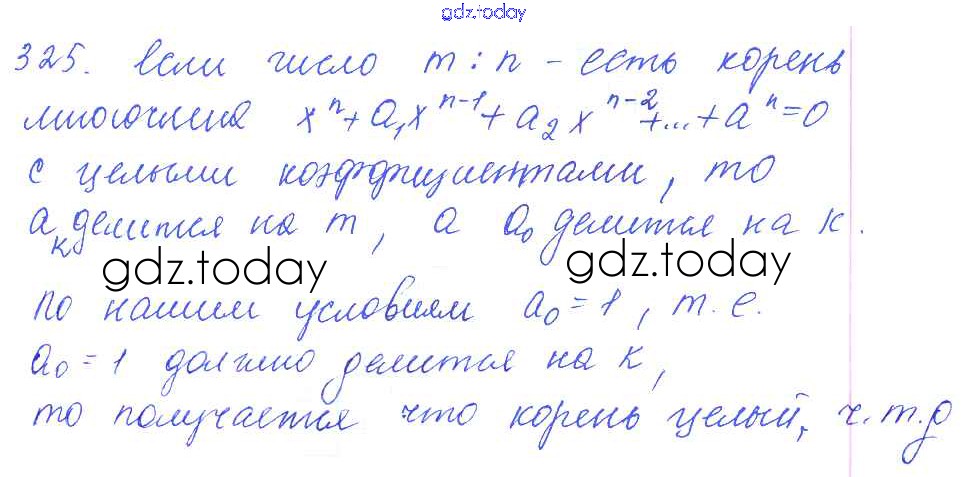 gdz.today
325. Если число m:n - есть корень
многочлена xⁿ + a₁xⁿ⁻¹ + a₂xⁿ⁻² + ... + aⁿ = 0
с целыми коэффициентами, то
aₖ делится на m, а a₀ делится на k.
gdz.today gdz.today
По нашим условиям a₀ = 1, т.е.
a₀ = 1 должно делится на k,
то получается что корень целый, ч.т.д